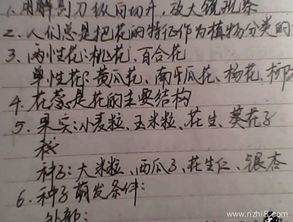 1.用解剖刀纵向切开,放大镜观察
2.人们总是把花的特征作为植物分类的
3.两性花:桃花、百合花
单性花:黄瓜花、南瓜花、杨花、柳
4.花蕊是花的主要结构
5.果实:小麦粒、玉米粒、花生、葵花子
种子:大米粒、西瓜子、花生仁、银杏
6.种子萌发条件:
外部:
www.rizhi8.com